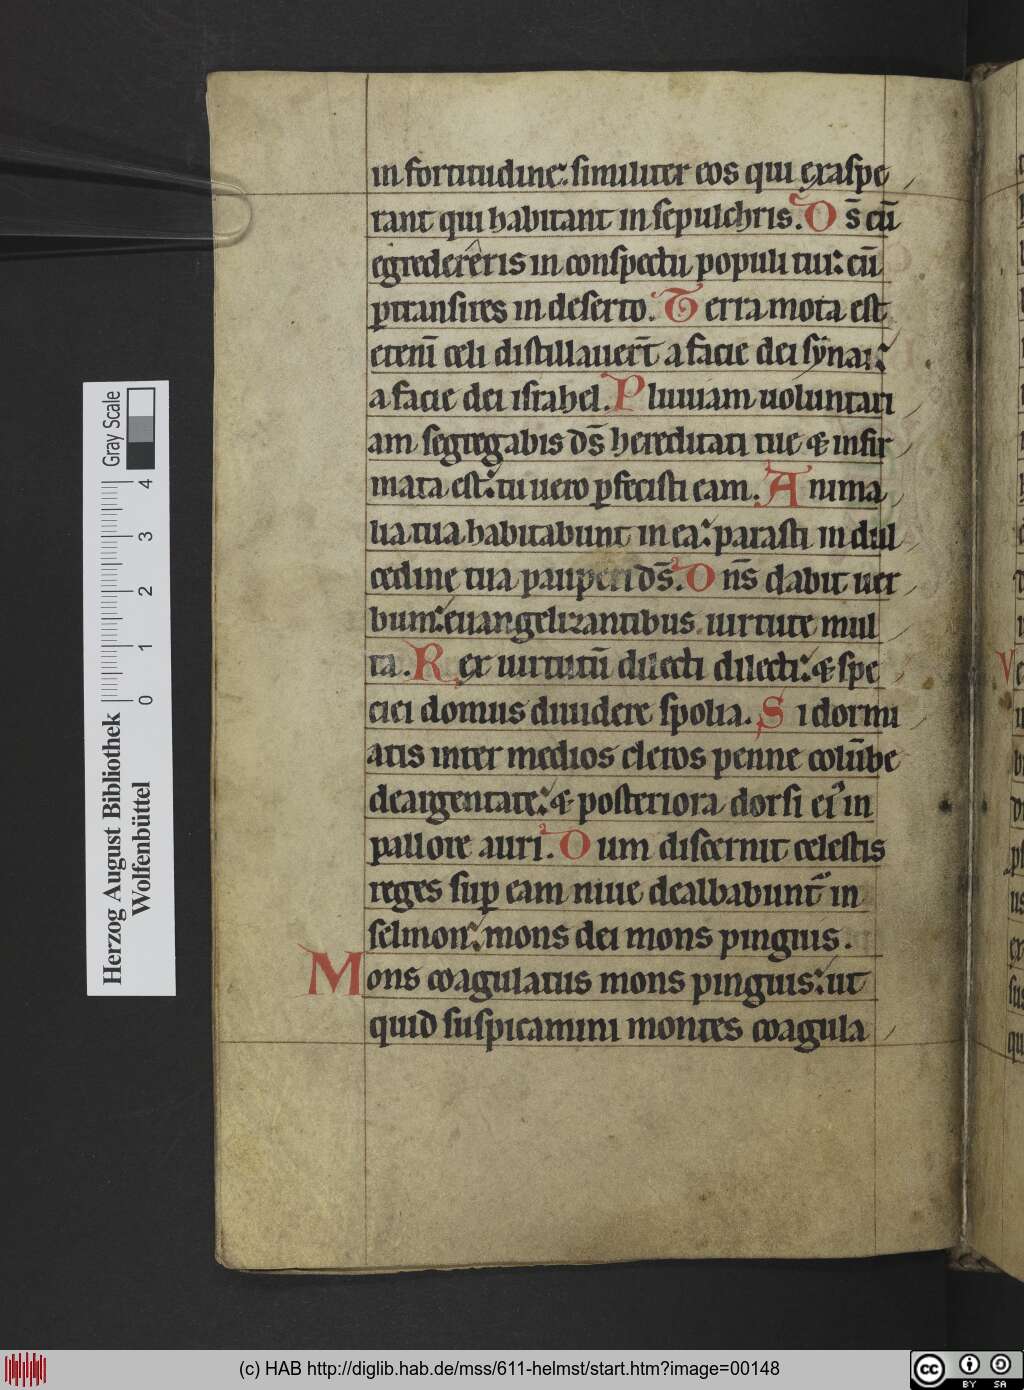 in fortitudine: similiter eos qui exaspe
rant qui habitant in sepulchris. Ds̄ cū
egredereris in conspectu populi tui: cū
ꝑtransires in deserto. Terra mota est
eteni celi distillauer̄t a facie dei synai:
a facie dei israhel. Pluuiam uoluntari
am segregabis ds̄ hereditati tue & infir
mata est: tu uero ꝑfecisti eam. Anima
lia tua habitabunt in ea: parasti in dul
cedine tua pauperi ds̄. Dn̄s dabit uer
bum: euangelizantibus uirtute mul
ta. Rex uirtutū dilecti dilecti: & spe
ciei domus diuidere spolia. Si dormi
atis inter medios cleros penne colūbe
deargentate: & posteriora dorsi ei' in
pallore auri. Dum discernit celestis
reges suꝑ eam niue dealbabunt' in
selmon: mons dei mons pinguis.
Mons coagulatus mons pinguis: ut
quid suspicamini montes coagula
Herzog August Bibliothek
Wolfenbüttel
0 1 2 3 4
Gray Scale
(c) HAB http://diglib.hab.de/mss/611-helmst/start.htm?image=00148
cc BY SA